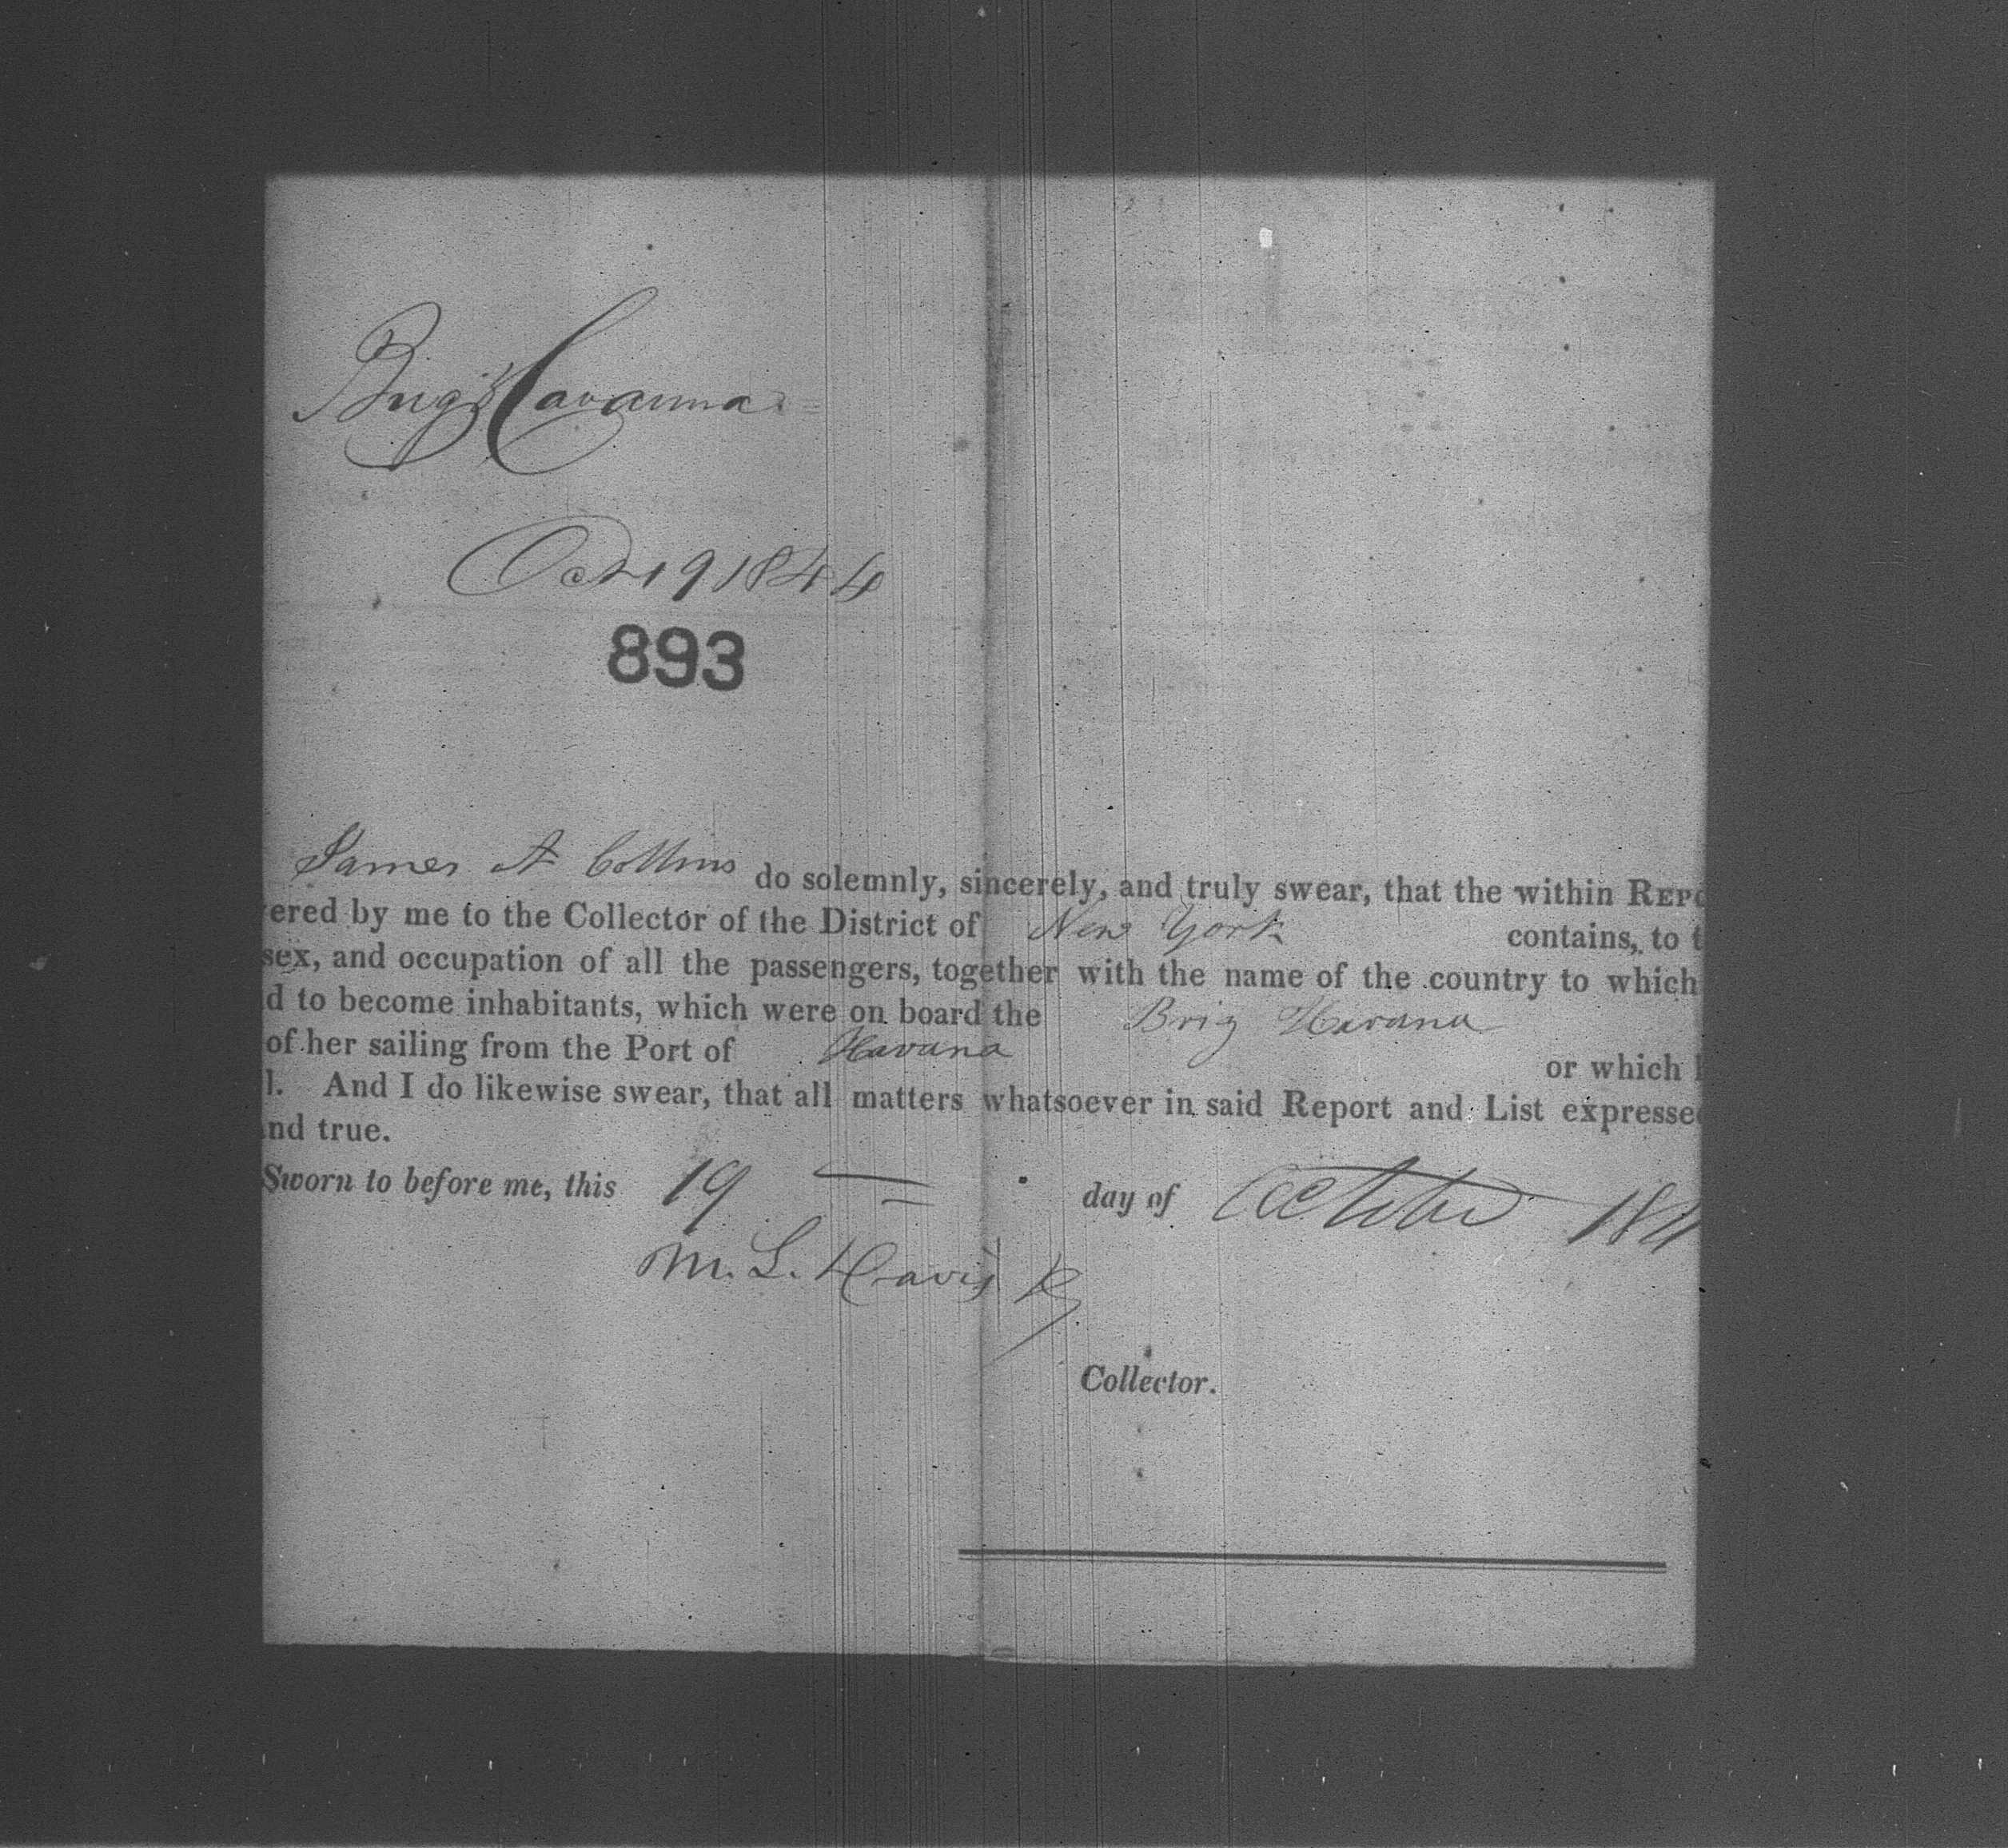 Brig Havanna
Oct 19 1844
893
James A Collins do solemnly, sincerely, and truly swear, that the within REPO
ered by me to the Collector of the District of New York contains, to t
sex, and occupation of all the passengers, together with the name of the country to which
d to become inhabitants, which were on board the Brig Havana
of her sailing from the Port of Havana or which
l. And I do likewise swear, that all matters whatsoever in said Report and List expresse
nd true.
Sworn to before me, this 19 day of October 184
M. L. Davis
Collector.